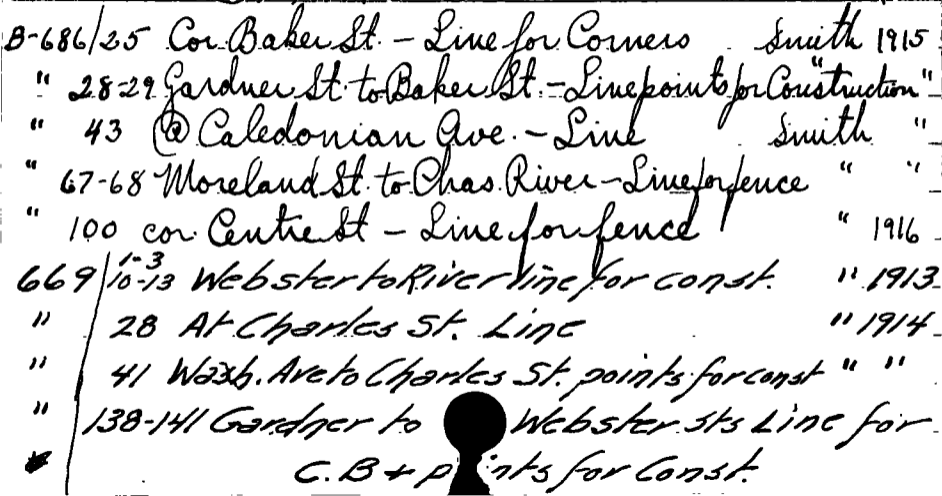 B-686/25 Cor. Baker St. - Line for Corners Smith 1915
" 28-29 Gardner St. to Baker St. - Line points for Construction " "
" 43 @ Caledonian Ave. - Line Smith "
" 67-68 Moreland St. to Chas. River - Line for fence " "
" 100 cor. Centre St - Line for fence " 1916
669/1-3 10-13 Webster to River line for const. " 1913
" 28 At Charles St. Line " 1914
" 41 Wash. Ave to Charles St. points for const " "
" 138-141 Gardner to Webster sts Line for
C.B + points for Const.